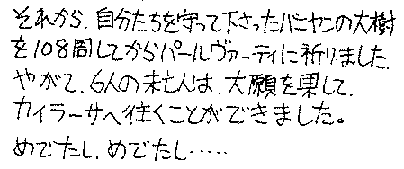 それから、自分たちを守って下さったバニヤンの大樹
を108周してからパールヴァーティに祈りました。
やがて、6人の未亡人は、大願を果して、
カイラーサへ往くことができました。
めでたし、めでたし・・・・・